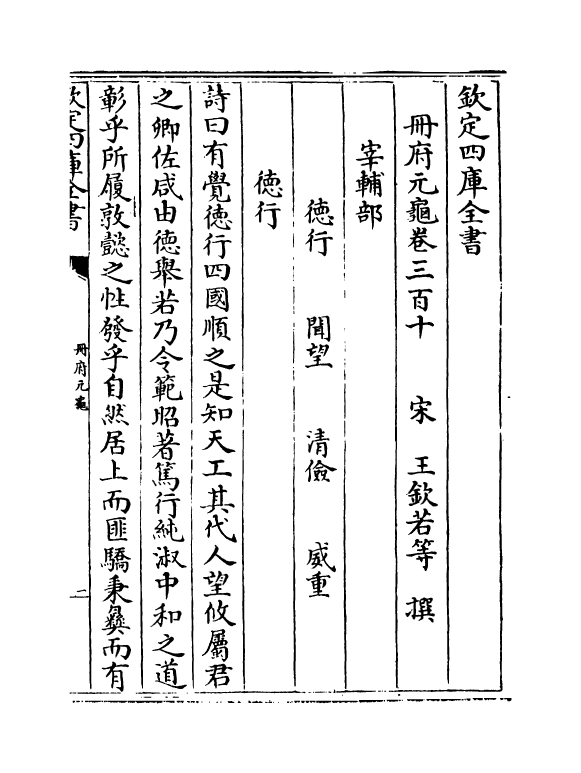 欽定四庫全書
冊府元龜卷三百十　宋　王欽若等　撰
宰輔部
德行　聞望　清儉　威重
德行
詩曰有覺德行四國順之是知天工其代人望攸屬君
之卿佐咸由德舉若乃令範昭著篤行純淑中和之道
彰乎所履敦懿之性發乎自然居上而匪驕秉彝而有
欽定四庫全書
冊府元龜